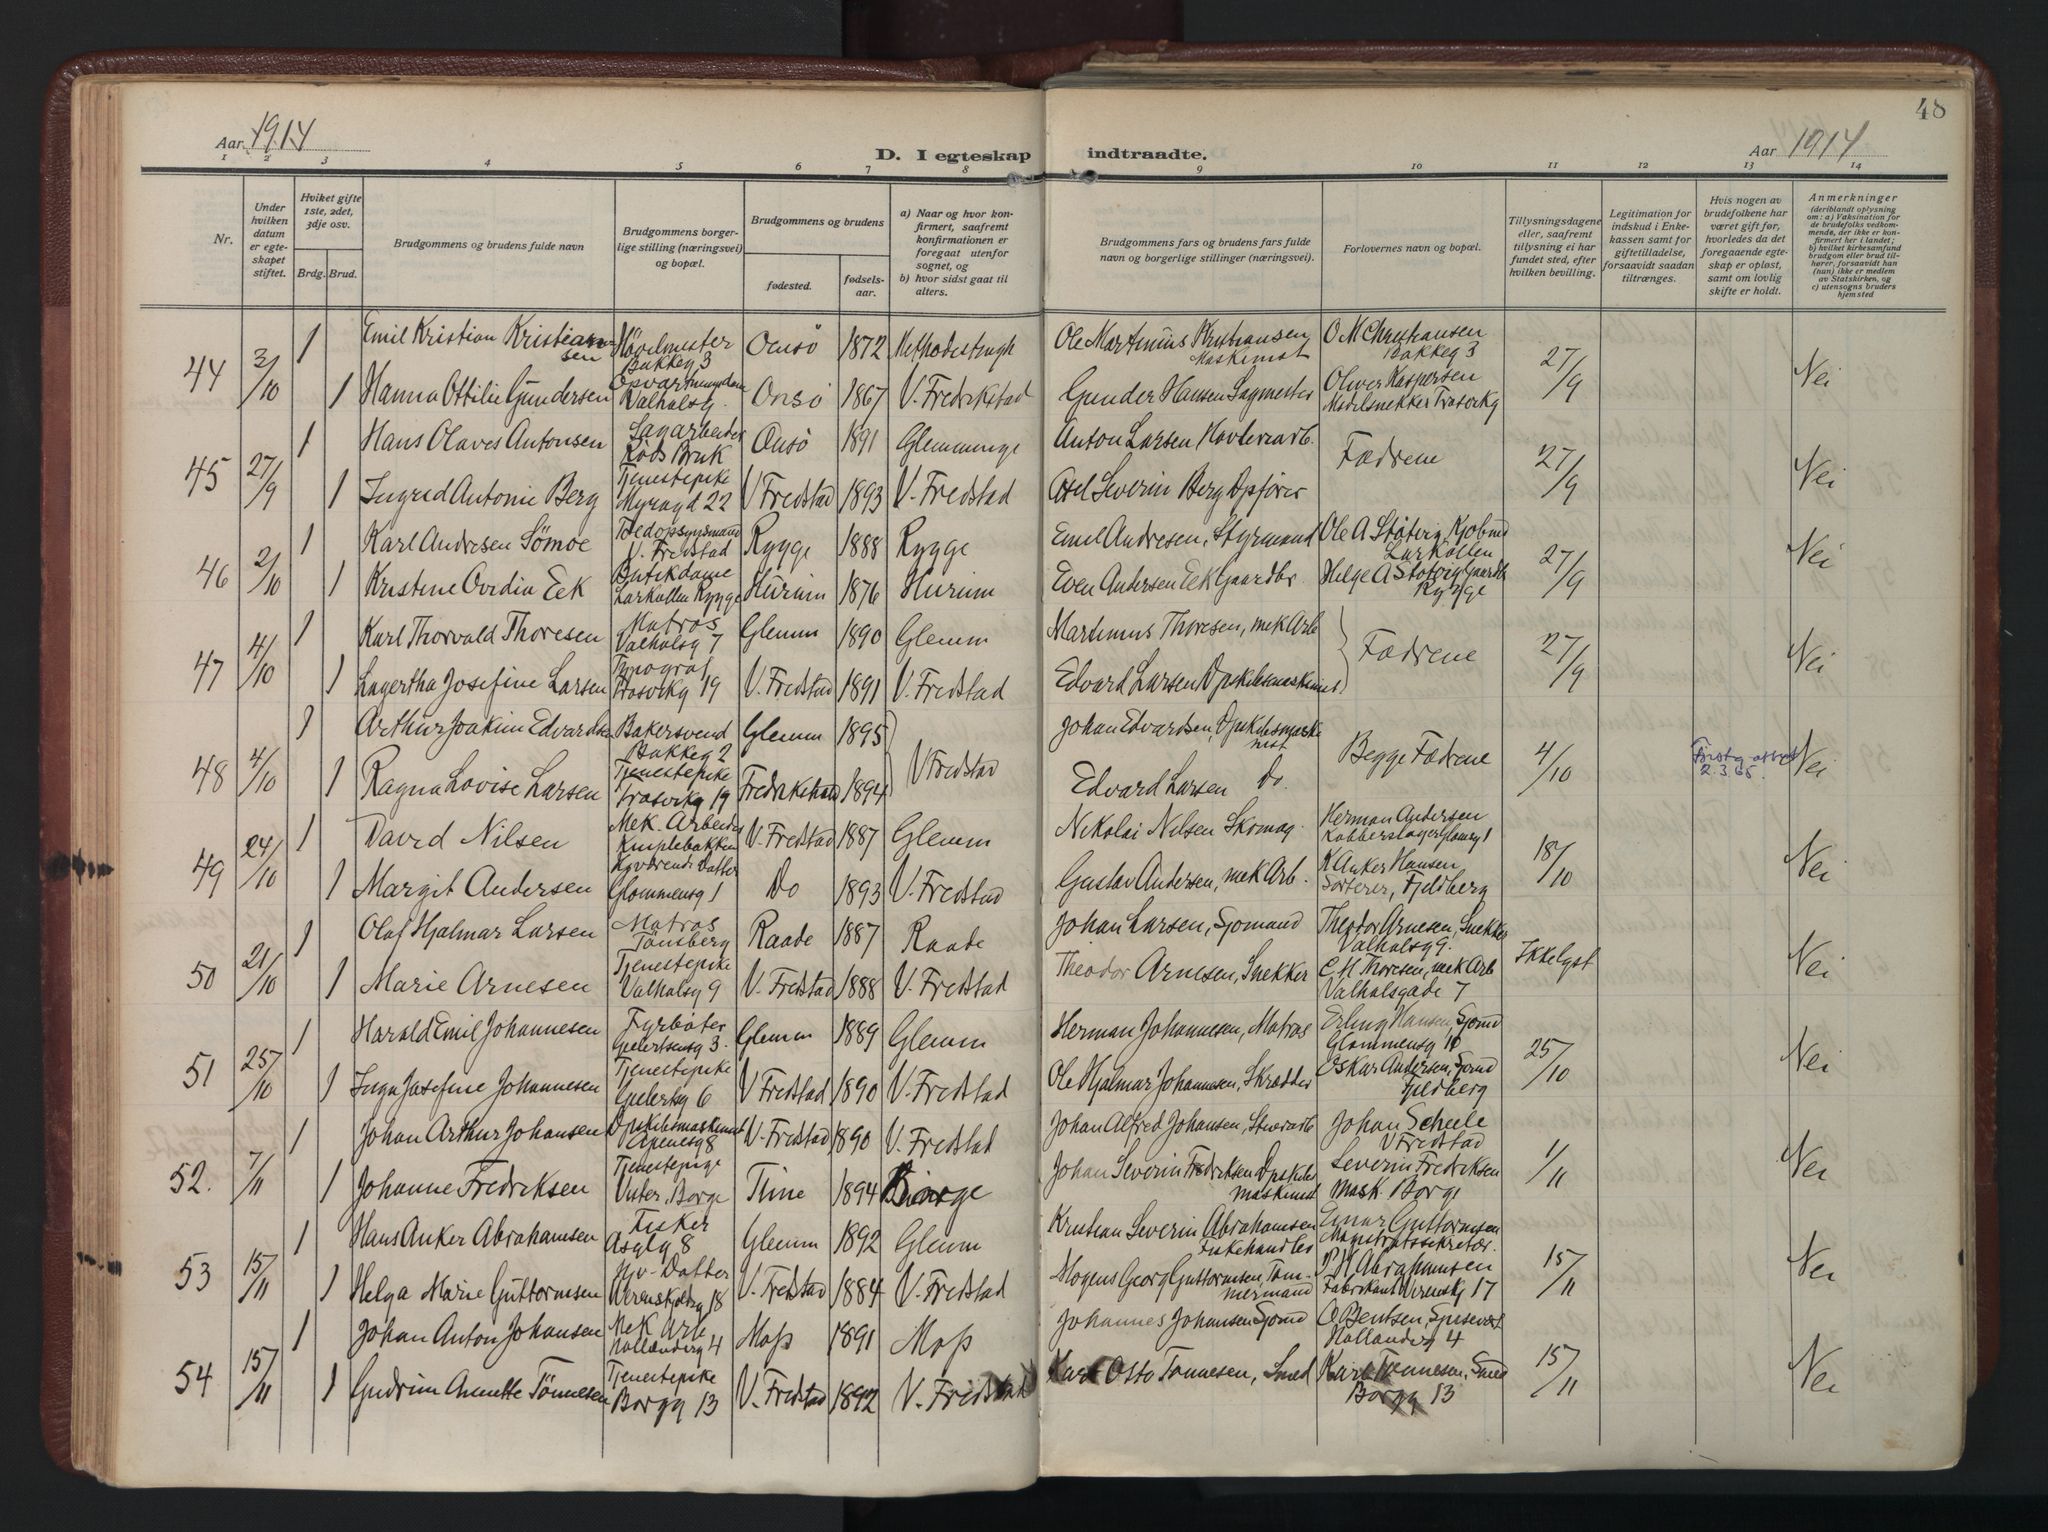 48
Aar 1914
D. I egteskap indtraadte.
Aar 1914
1 2 3 4 5 6 7 8 9 10 11 12 13 14
Nr.
Under hvilken datum er egteskapet stiftet.
Hvilket gifte 1ste, 2det, 3dje osv.
Brdg. Brud.
Brudgommens og brudens fulde navn
Brudgommens borgerlige stilling (næringsvei) og bopæl.
Brudgommens og brudens
fødested.
fødselsaar.
a) Naar og hvor konfirmert, saafremt konfirmationen er foregaat utenfor sognet, og
b) hvor sidst gaat til alters.
Brudgommens fars og brudens fars fulde navn og borgerlige stillinger (næringsvei).
Forlovernes navn og bopæl.
Tillysningsdagene eller, saafremt tillysning ei har fundet sted, efter hvilken bevilling.
Legitimation for indskud i Enkekassen samt for giftetilladelse, forsaavidt saadan tiltrænges.
Hvis nogen av brudefolkene har været gift før, hvorledes da det foregaaende egteskap er opløst, samt om lovlig skifte er holdt.
Anmerkninger
(deriblandt oplysning om: a) Vaksination for de brudefolks vedkommende, der ikke er konfirmert her i landet; b) hvilket kirkesamfund brudgom eller brud tilhører, forsaavidt han (hun) ikke er medlem av Statskirken, og c) utensogns bruders hjemsted
44 3/10 1 Emil Kristian Kristiansen Høvelmester Bakkeg 3 Onsö 1872 Ole Martinius Kristiansen Maskinist O M Christiansen Bakkeg 3 27/9 Nei
1 Hanna Ottilie Gundersen Valhalsg. Onsö 1867 V. Fredrikstad Gunder Hansen Sagmester Oliver Kaspersen Modelsnekker Trosvikg
45 27/9 1 Hans Olaves Antonsen Sagarbeider Röds Bruk Onsö 1891 Glemminge Anton Larsen Fædrene 27/9 Nei
1 Ingrid Antonie Berg Tjenestepike Myragd 22 V Fredstad 1893 V. Fredstad Axel Severin Berg
46 2/10 1 Karl Andresen Sömoe V. Fredstad Rygge 1888 Rygge Emil Andresen, Styrmand Ole A Støtvig Larkollen 27/9 Nei
1 Kristine Ovidia Eek Butikdame Larkollen Rygge Hurum 1876 Hurum Even Andersen Eek Gaardbr. Helge A Støtvig Gaardb Rygge
47 4/10 1 Karl Thorvald Thoresen Matros Valhalsg 7 Glemm 1890 Glemm Martinius Thoresen, mek Arb Fædrene 27/9 Nei
1 Lagertha Josefine Larsen Trosvikg 19 V. Fredstad 1891 V. Fredstad Edvard Larsen Dpskibsmaskinist
48 4/10 1 Arthur Joakim Edvardsen Bakersvend Bakkeg 2 Glemm 1895 V Fredstad Johan Edvardsen, Dpskibsmaskinist Begge Fædrene 4/10 2.3.65. Nei
1 Ragna Lovise Larsen Tjenestepike Trosvikg 19 Fredrikstad 1894 Edvard Larsen Do.
49 24/10 1 David Nilsen Mek. Arbeider V. Fredstad 1887 Glemm Nikolai Nilsen Skomag. Herman Andersen Kobberslager Glomg 1 18/10 Nei
1 Margit Andersen Hjværende Datter Glommensg 1 Do 1893 V. Fredstad Gustav Andersen, mek Arb. K Anker Hansen Sorterer, Fjeldberg
50 21/10 1 Olaf Hjalmar Larsen Matros Tönsberg Raade 1887 Raade Johan Larsen, Sjomand Theodor Arnesen, Snekker Valhalsg 9. Ikke lyst Nei
1 Marie Arnesen Tjenestepike Valhalsg 9 V. Fredstad 1888 V. Fredstad Theodor Arnesen, Snekker C M Thoresen, mek Arb Valhalsgade 7
51 25/10 1 Harald Emil Johannesen Fyrböter Geelertsensg 3. Glemm 1889 Glemm Herman Johannesen, Matros Erling Hansen, Sjomd Glommensg 10 25/10 Nei
1 Inga Josefine Johannesen Tjenestepike V Fredstad 1890 V. Fredstad Ole Hjalmar Johannesen, Skrædder Oskar Andersen, Sjomd Fjeldberg
52. 7/11 1 Johan Arthur Johansen Dpskibsmaskinist V. Fredstad 1890 V. Fredstad Johan Alfred Johansen, Johan Scheele V Fredstad 1/11 Nei
1 Johanne Fredriksen Tjenestepige Borge Tune 1894 Borge Johan Severin Fredriksen Dpskibsmaskinist Severin Fredriksen Mask. Borge
53 15/11 1 Hans Anker Abrahamsen Fisker Glemm 1892 Glemm Kristian Severin Abrahamsen Fiskehandler Einar Guttormsen Magistratssekretær. 15/11 Nei
1 Helga Marie Guttormsen Hjv. Datter Werenskjoldg 18 V. Fredstad 1884 V. Fredstad Mogens Georg Guttormsen, Tømmermand Abrahamsen Fabrikant Werenskg 17
54 15/11 1 Johan Anton Johansen Mek Arb Hollænderg 4 Moss 1891 Moss Johannes Johansen Sjomd O Bentsen, Spisevært Hollænderg 4 15/11 Nei
1 Gudrun Annette Tönnesen Tjenestepike Borgg 13 V. Fredstad 1892 V. Fredstad Karl Otto Tönnesen, Smed Karl Tönnesen, Smed Borgg 13